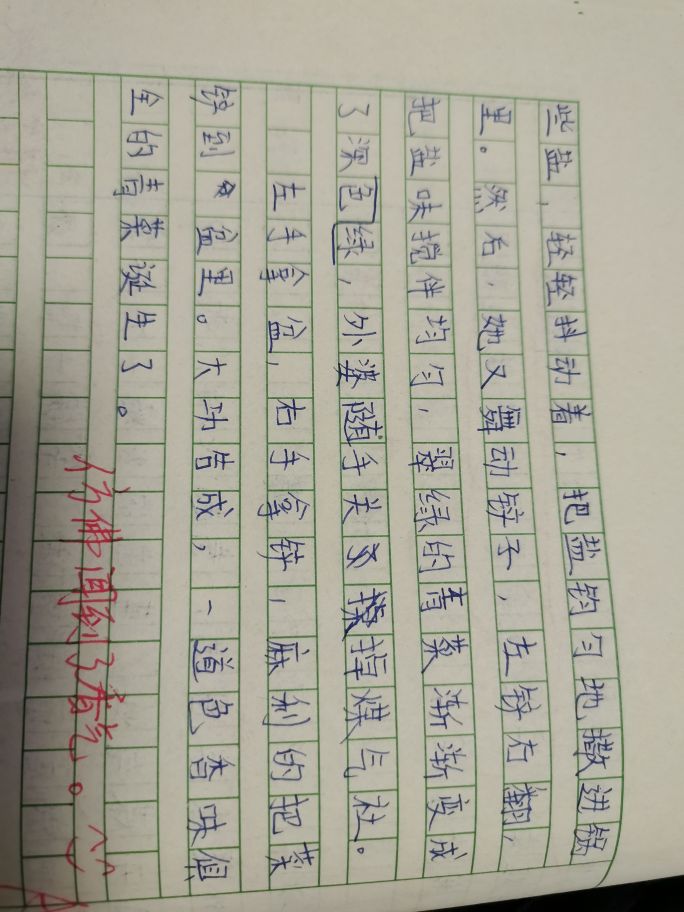 些盐，轻轻抖动着，把盐钧匀地撒进锅
里。然后，她又舞动铲子，左铲右翻，
把盐味搅伴均匀，翠绿的青菜渐渐变成
了深色绿，外婆随手关掉煤气社。
左手拿盆，右手拿铲，麻利的把菜
铲到盆里。大功告成，一道色香味俱
全的青菜诞生了。
仿佛闻到了香气。